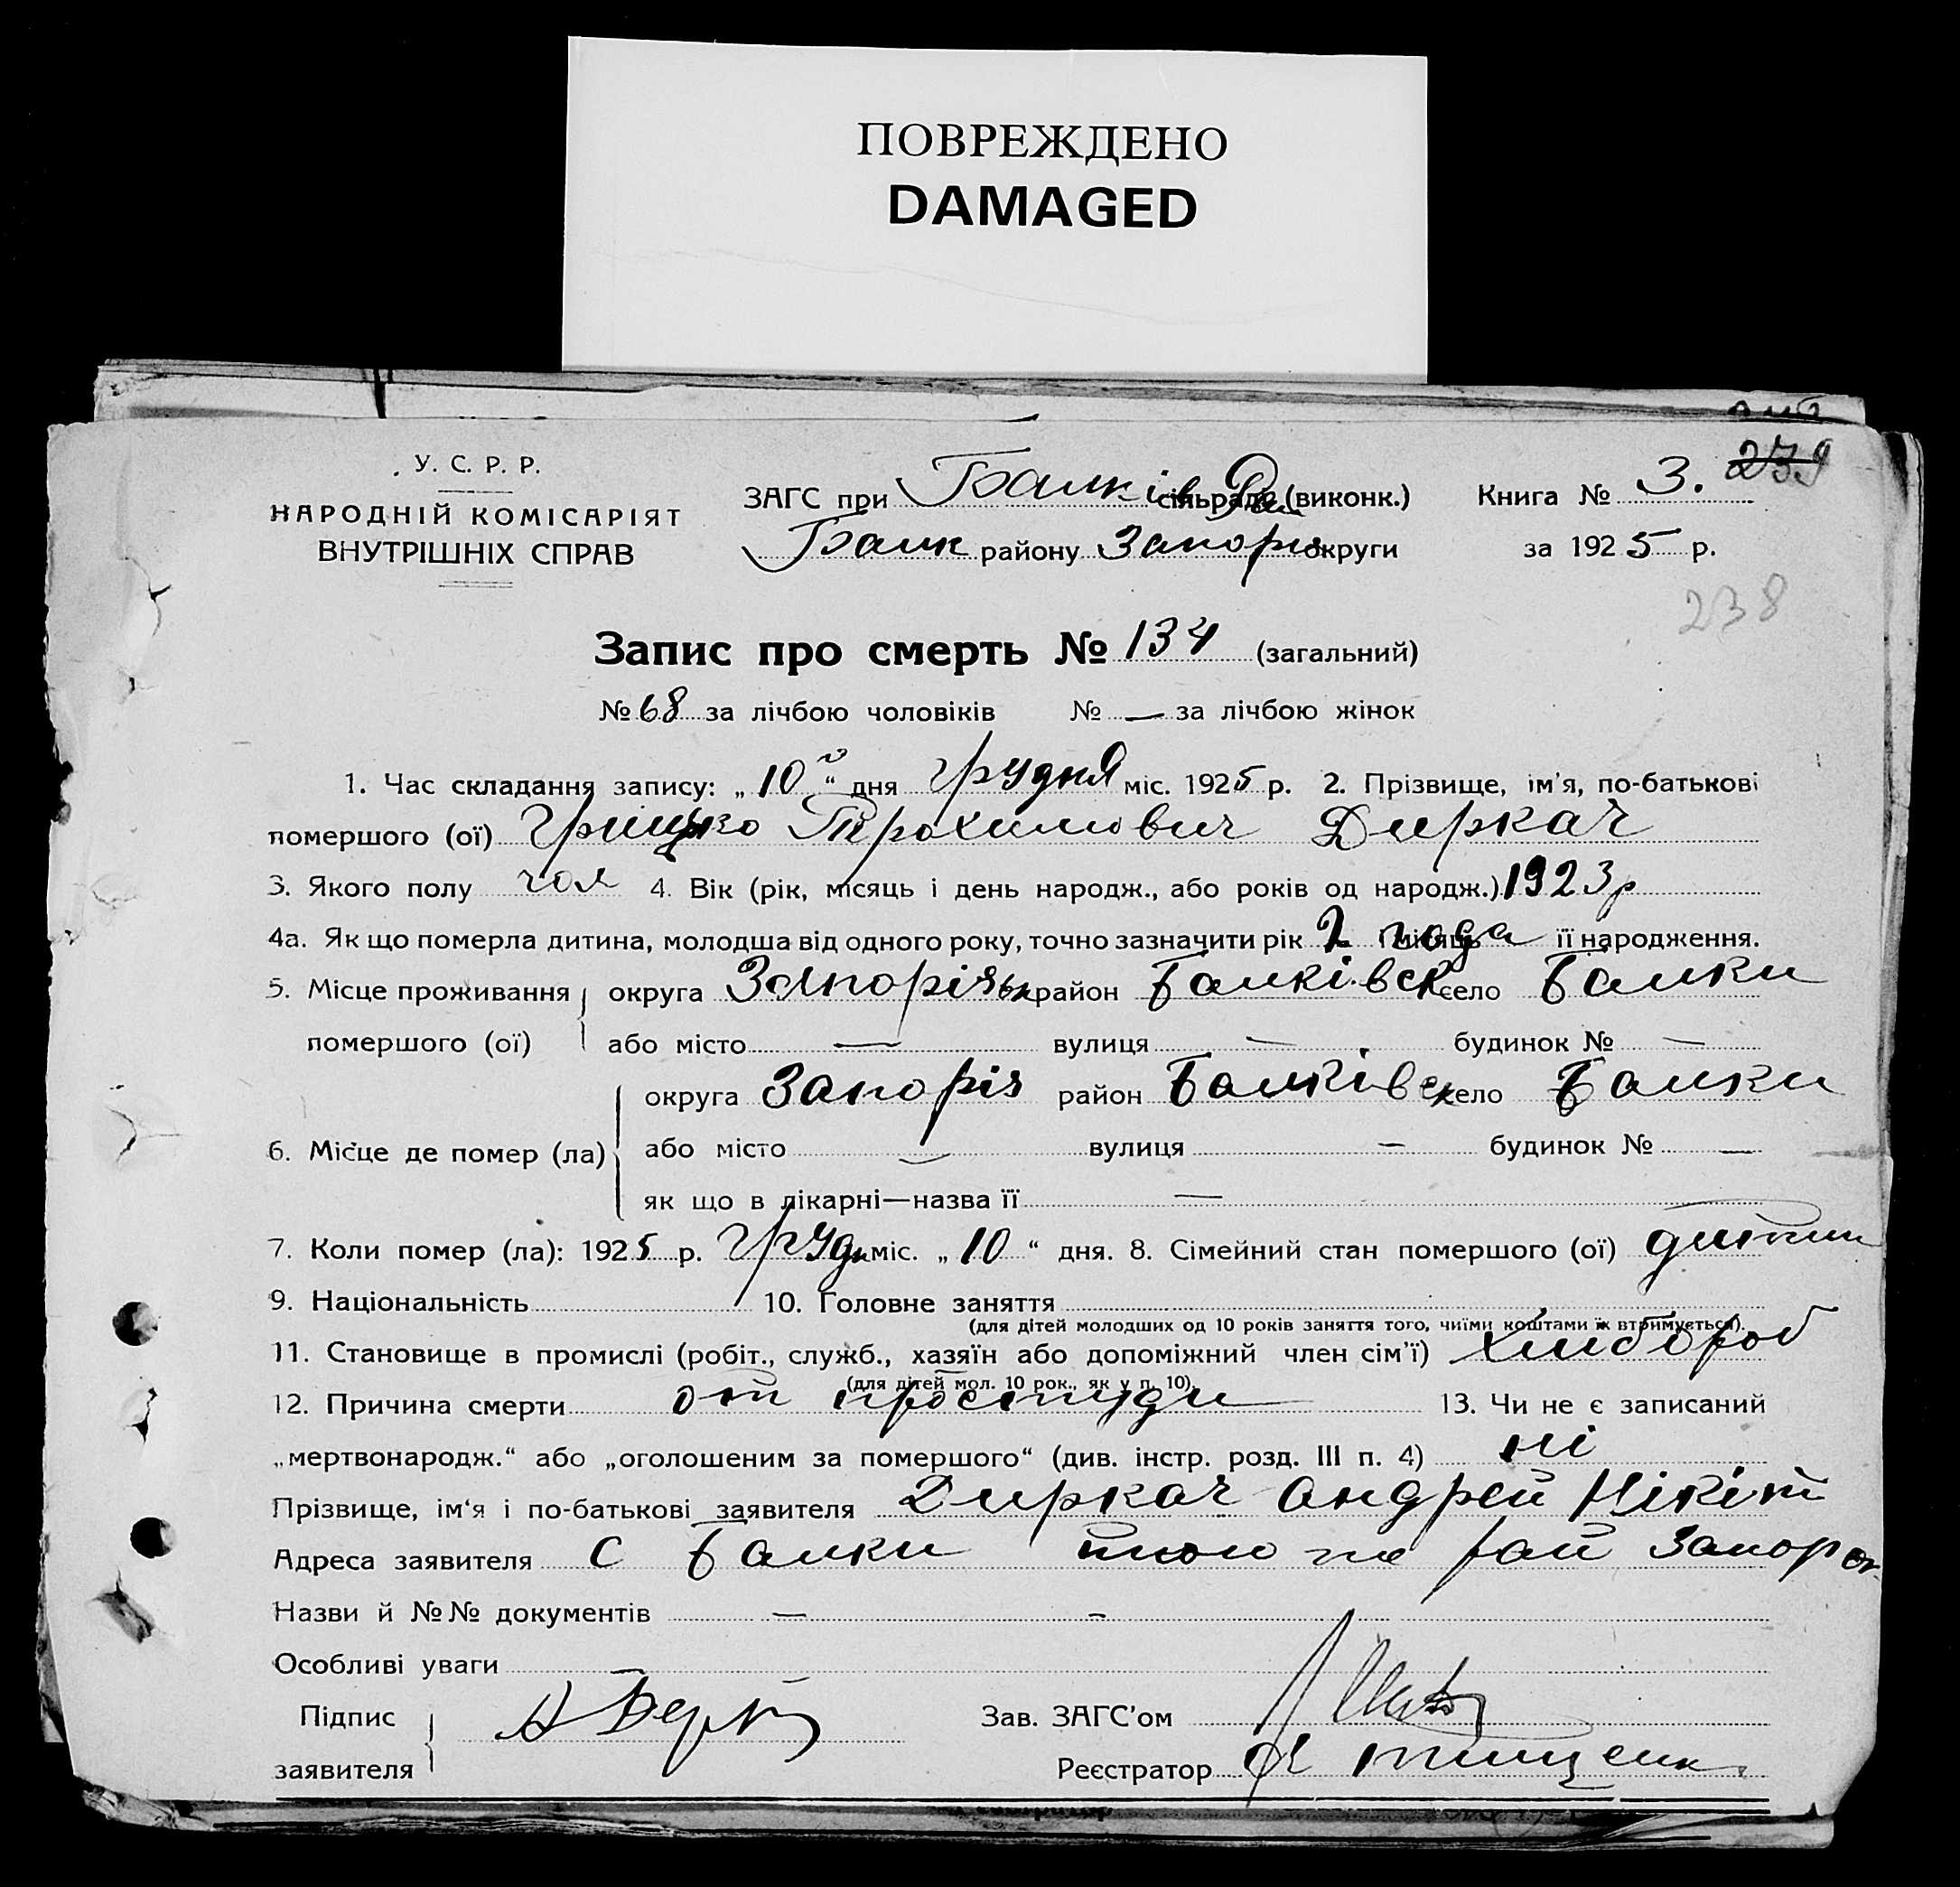 ПОВРЕЖДЕНО
DAMAGED
239
У. С. Р. Р.
НАРОДНІЙ КОМІСАРІЯТ
ВНУТРІШНІХ СПРАВ
ЗАГС при Балків Рай сільраде (виконк.)
Балк району Запоріз округи
Книга № 3.
за 1925 р.
238
Запис про смерть № 134 (загальний)
№ 68 за лічбою чоловіків № — за лічбою жінок
1. Час складання запису: „10“ дня грудня міс. 1925 р. 2. Прізвище, ім'я, по-батькові
помершого (ої) Грицько Трохимович Диркач
3. Якого полу чол 4. Вік (рік, місяць і день народж., або років од народж.) 1923р
4а. Як що померла дитина, молодша від одного року, точно зазначити рік 2 і місяць года її народження.
5. Місце проживання помершого (ої) округа Запорізьк район Балківск село Балки
або місто — вулиця — будинок № —
6. Місце де помер (ла) округа Запоріз район Балківск село Балки
або місто — вулиця — будинок № —
як що в лікарні—назва її —
7. Коли помер (ла): 1925 р. Грудн міс. „10“ дня. 8. Сімейний стан помершого (ої) дитин
9. Національність 10. Головне заняття
(для дітей молодших од 10 років заняття того, чиїми коштами їх втримується).
11. Становище в промислі (робіт., служб., хазяїн або допоміжний член сім'ї) хлибороб
(для дітей мол. 10 рок., як у п. 10).
12. Причина смерти от простуди 13. Чи не є записаний
„мертвонародж.“ або „оголошеним за помершого“ (див. інстр. розд. III п. 4) ні
Прізвище, ім'я і по-батькові заявителя Диркач Андрей Нікіт
Адреса заявителя с Балки того же рай Запор ок
Назви й №№ документів — –
Особливі уваги
Підпис заявителя
Зав. ЗАГС'ом
Реєстратор Тищенк